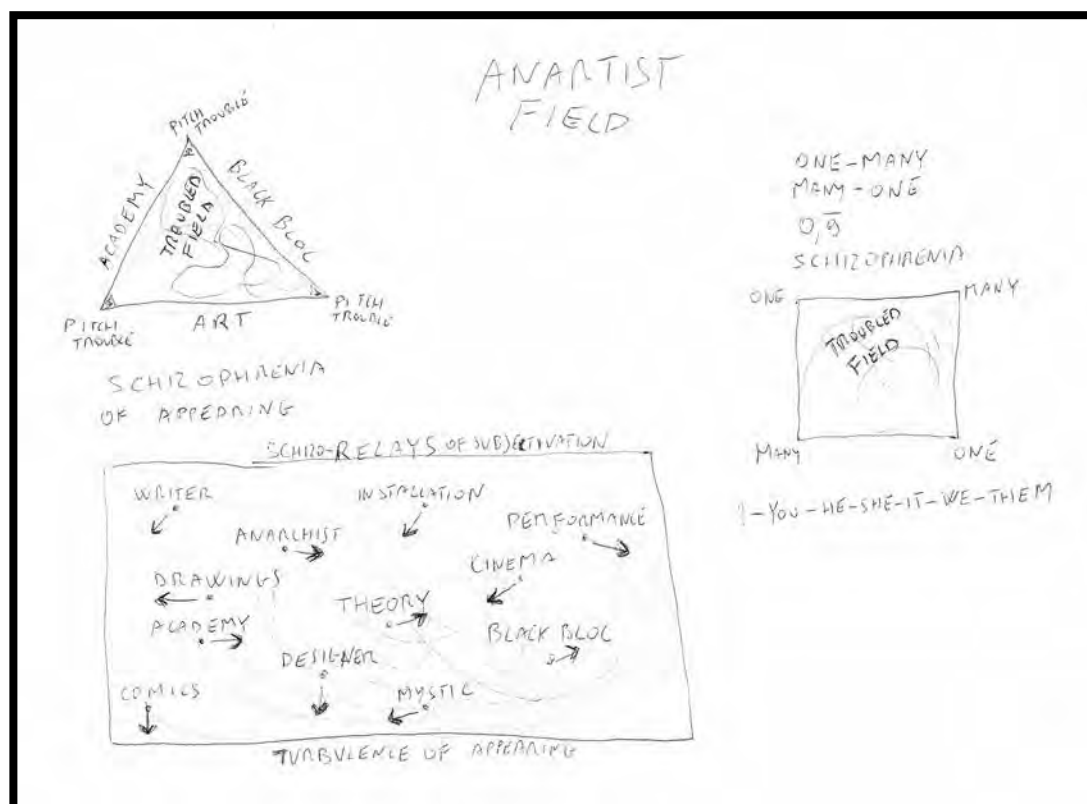 ANARTIST
FIELD
PITCH
TROUBLÉ
ACADEMY
BLACK BLOC
TROUBLED
FIELD
PITCH
TROUBLÉ
ART
PITCH
TROUBLÉ
SCHIZOPHRENIA
OF APPEARING
ONE-MANY
MANY-ONE
0,9̅
SCHIZOPHRENIA
ONE
MANY
TROUBLED
FIELD
MANY
ONÉ
I-YOU-HE-SHE-IT-WE-THEM
SCHIZO-RELAYS OF SUBJECTIVATION
WRITER
INSTALLATION
ANARCHIST
PERFORMANCE
DRAWINGS
CINEMA
THEORY
ACADEMY
BLACK BLOC
DESIGNER
COMICS
MYSTIC
TURBULENCE OF APPEARING